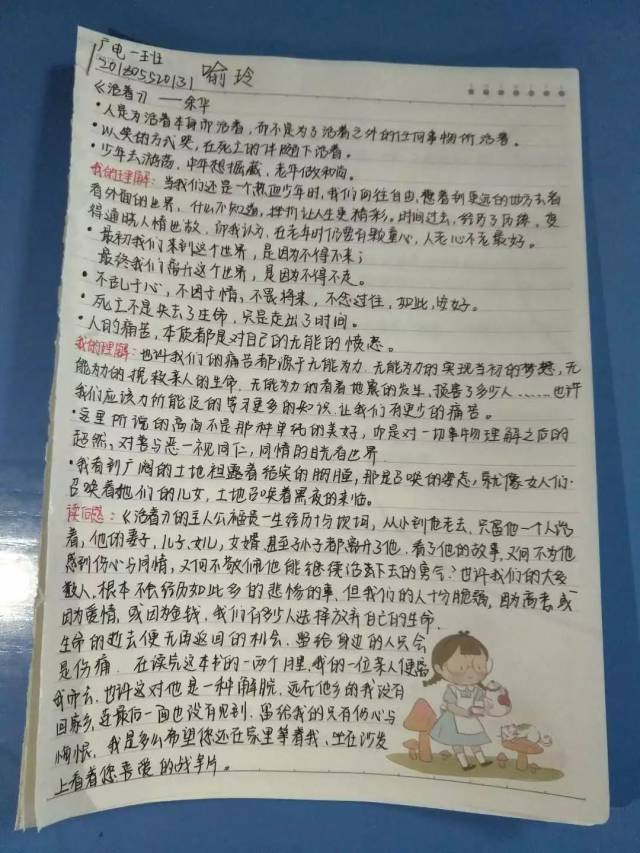 广电一班
201805520131 喻玲
《活着》 ——余华
·人是为活着本身而活着，而不是为了活着之外的任何事物所活着。
·以笑的方式哭，在死亡的伴随下活着。
·少年去游荡，中年想掘藏，老年做和尚。
我的理解：当我们还是一个热血少年时，我们向往自由，想着到更远的地方去看
看外面的世界，什么不知道，挫折让人生更精彩。时间过去，经历了历练，变
得通晓人情世故，而我认为，在老年时仍要有颗童心，人老心不老最好。
·最初我们来到这个世界，是因为不得不来；
最终我们离开这个世界，是因为不得不走。
·不乱于心，不困于情，不畏将来，不念过往，如此，安好。
·死亡不是失去了生命，只是走出了时间。
·人的痛苦，本质都是对自己的无能的愤怒。
我的理解：也许我们的痛苦都源于无能为力，无能为力的实现当初的梦想，无
能为力的挽救亲人的生命，无能为力的看着地震的发生，损害了多少人……也许
我们应该力所能及的学习更多的知识，让我们有更少的痛苦。
·这里所说的高尚不是那种单纯的美好，而是对一切事物理解之后的
超然，对善与恶一视同仁，同情的目光看世界
·我看到广阔的土地袒露着结实的胸膛，那是召唤的姿态，就像女人们
召唤着她们的儿女，土地召唤着黑夜的来临。
读后感：《活着》的主人公福贵一生经历十分坎坷，从小到他老去，只留他一个人活
着，他的妻子，儿子、女儿，女婿甚至孙子都离开了他，看了他的故事，又何不为他
感到伤心与同情，又何不敬佩他能继续活下去的勇气？也许我们的大多
数人，根本不会经历如此多的悲惨的事，但我们的人十分脆弱，因为高考，或
因为爱情，或因为金钱，我们有多少人选择放弃自己的生命，
生命的逝去便无再返回的机会，留给身边的人只会
是伤痛。在读完这本书的一两个月里，我的一位亲人便离
我而去，也许这对他是一种解脱，远在他乡的我没有
回家乡，连最后一面也没有见到，留给我的只有伤心与
悔恨，我是多么希望您还在家里等着我，坐在沙发
上看着您喜爱的战争片。